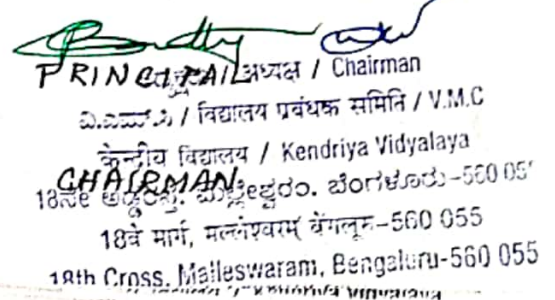 PRINCIPAL
अध्यक्ष / Chairman
ವಿ.ಎಮ್.ಸಿ / विद्यालय प्रबंधक समिति / V.M.C
केन्द्रीय विद्यालय / Kendriya Vidyalaya
CHAIRMAN
18ನೇ ಅಡ್ಡರಸ್ತೆ, ಮಲ್ಲೇಶ್ವರಂ. ಬೆಂಗಳೂರು-560 05
18वे मार्ग, मल्लेश्वरम् बेंगलूरु-560 055
18th Cross, Malleswaram, Bengaluru-560 055